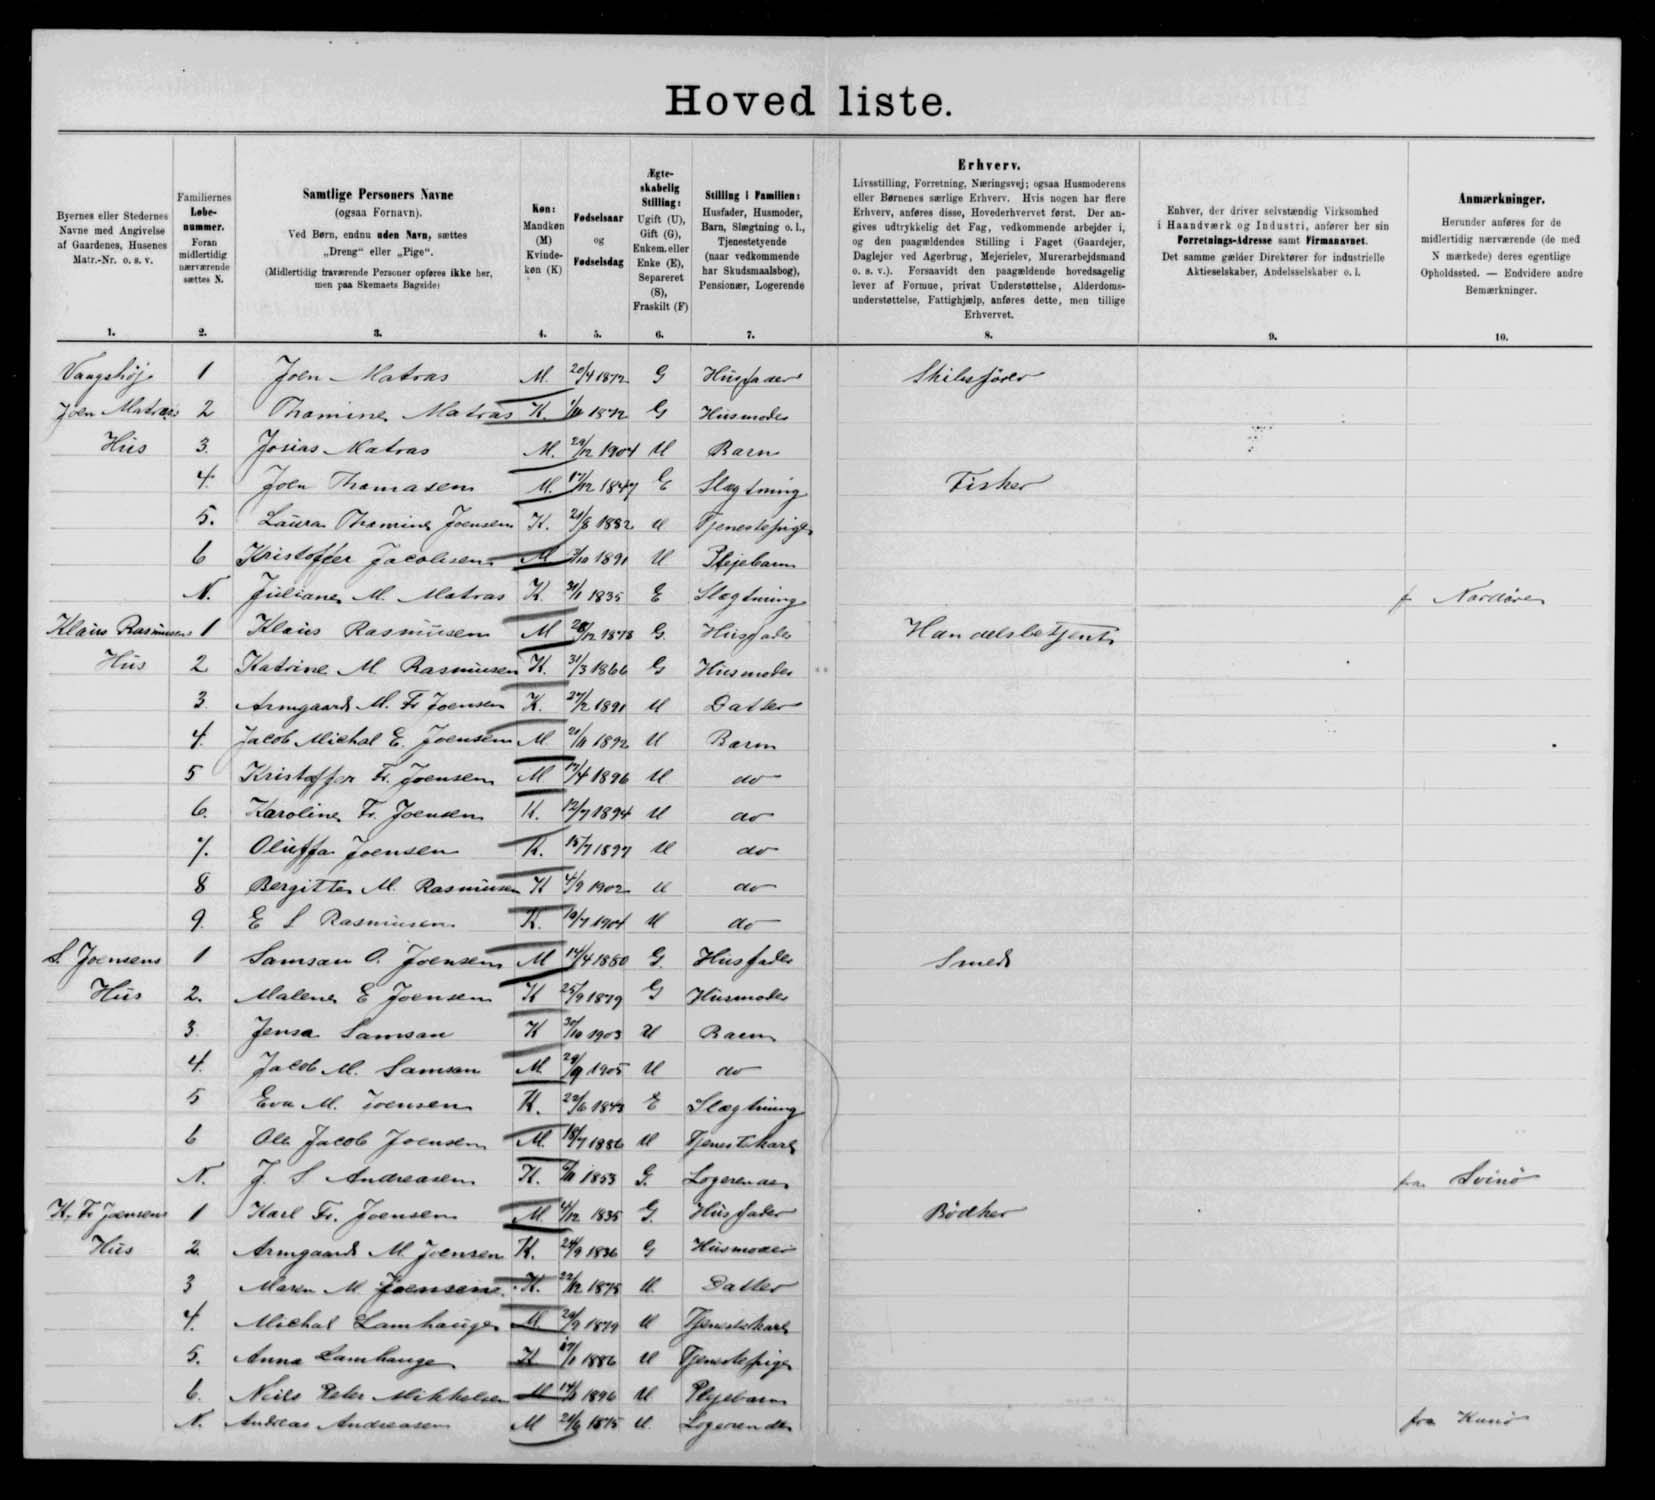 Hovedliste.
Byernes eller Stedernes Navne med Angivelse af Gaardenes, Husenes Matr.-Nr. o. s. v.
Familiernes Løbenummer. Foran midlertidig nærværende sættes N.
Samtlige Personers Navne
(ogsaa Fornavn).
Ved Børn, endnu uden Navn, sættes
„Dreng“ eller „Pige“.
(Midlertidig fraværende Personer opføres ikke her, men paa Skemaets Bagside)
Køn: Mandkøn (M) Kvindekøn (K)
Fødselsaar og Fødselsdag
Ægteskabelig Stilling: Ugift (U), Gift (G), Enkem. eller Enke (E), Separeret (S), Fraskilt (F)
Stilling i Familien: Husfader, Husmoder, Barn, Slægtning o. l., Tjenestetyende (naar vedkommende har Skudsmaalsbog), Pensionær, Logerende
Erhverv.
Livsstilling, Forretning, Næringsvej; ogsaa Husmoderens
eller Børnenes særlige Erhverv. Hvis nogen har flere
Erhverv, anføres disse, Hovederhvervet først. Der an-
gives udtrykkelig det Fag, vedkommende arbejder i,
og den paagældendes Stilling i Faget (Gaardejer,
Daglejer ved Agerbrug, Mejerielev, Murerarbejdsmand
o. s. v.). Forsaavidt den paagældende hovedsagelig
lever af Formue, privat Understøttelse, Alderdoms-
understøttelse, Fattighjælp, anføres dette, men tillige
Erhvervet.
Enhver, der driver selvstændig Virksomhed
i Haandværk og Industri, anfører her sin
Forretnings-Adresse samt Firmanavnet.
Det samme gælder Direktører for industrielle
Aktieselskaber, Andelsselskaber o. l.
Anmærkninger.
Herunder anføres for de
midlertidig nærværende (de med
N mærkede) deres egentlige
Opholdssted. — Endvidere andre
Bemærkninger.
1. 2. 3. 4. 5. 6. 7. 8. 9. 10.
Vaagshøj 1 Joen Matras M. 20/4 1872 G Husfader
Joen Matras 2 Thomine Matras K. 1872 G Husmoder
Hus 3. Josias Matras M. 29/12 1904 U Barn
4. Joen Thomasen M. 17/12 1847 E Slægtning Fisker
5. Laura Thomine Joensen K. 21/8 1882 U Tjenestepige
6 Kristoffer Jacobsen M 3/10 1891 U Plejebarn
N. Juliane M. Matras K 31/1 1835 E Slægtning
Klaus Rasmusens 1 Klaus Rasmusen M 28/12 1878 G. Husfader Handelsbetjent
Hus 2 Katrine M Rasmusen K. 31/3 1866 G Husmoder
3. Armgaard M. Fr Joensen K. 27/2 1891 U Datter
4. Jacob Michal E. Joensen M. 21/11 1892 U Barn
5 Kristoffer Fr. Joensen M 17/4 1896 U do
6. Karoline Fr. Joensen K. 12/7 1894 U do
7. Oluffa Joensen K. 15/7 1897 U do
8 Bergitte M. Rasmusen K 4/9 1902 U do
9. E S Rasmusen K. 19/7 1904 U do
S. Joensens 1 Samson O. Joensen M 14/4 1880 G. Husfader Smed
Hus 2. Malene E Joensen K 25/9 1879 G Husmoder
3 Jensa Samson K 30/10 1903 U Barn
4. Jacob M. Samson M. 29/9 1905 U do
5 Eva M. Joensen K. 22/6 1843 E Slægtning
6 Ole Jacob Joensen M. 18/7 1886 U Tjenestekarl
N. J. S Andreasen K. 1853 G. Logerende fra Svinø
K. Fr Joensens 1 Karl Fr. Joensen M. 4/12 1835 G. Husfader Bødker
Hus 2. Armgaard M Joensen K. 24/9 1836 G Husmoder
3 Maren M. Joensen K. 22/12 1875 U. Datter
4. Michal Lamhauge M. 29/9 1879 U Tjenestekarl
5. Anna Lamhauge K 17/1 1886 U Tjenestepige
6. Niels Peter Mikkelsen M 14/11 1896 U Plejebarn
N. Andreas Andreasen M 21/6 1875 U. Logerende fra Kunø